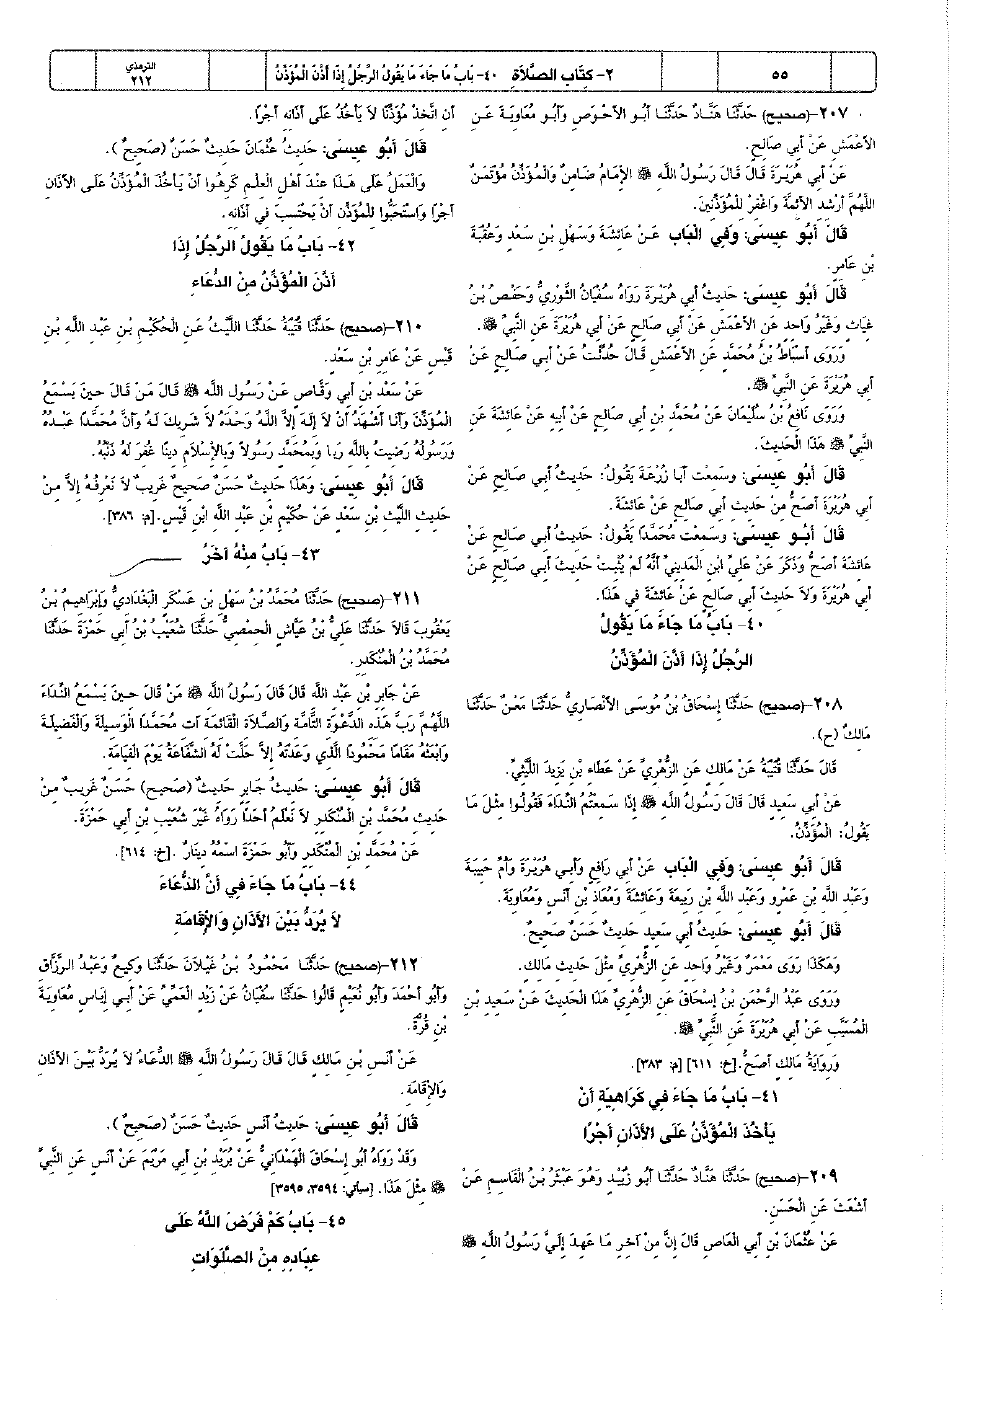 ٥٥
٢- كِتَاب الصَّلاَة ٤٠- بَابُ مَا جَاءَ مَا يَقُولُ الرَّجُلُ إِذَا أَذَّنَ الْمُؤَذِّنُ
الترمذي
٢١٢
٢٠٧-(صحيح) حَدَّثَنَا هَنَّادٌ حَدَّثَنَا أَبُو الأَحْوَصِ وَأَبُو مُعَاوِيَةَ عَنِ
الأَعْمَشِ عَنْ أَبِي صَالِحٍ.
عَنْ أَبِي هُرَيْرَةَ قَالَ قَالَ رَسُولُ اللَّهِ ﷺ الإِمَامُ ضَامِنٌ وَالْمُؤَذِّنُ مُؤْتَمَنٌ
اللَّهُمَّ أَرْشِدِ الأَئِمَّةَ وَاغْفِرْ لِلْمُؤَذِّنِينَ.
قَالَ أَبُو عِيسَى: وَفِي الْبَاب عَنْ عَائِشَةَ وَسَهْلِ بْنِ سَعْدٍ وَعُقْبَةَ
بْنِ عَامِرٍ.
قَالَ أَبُو عِيسَى: حَدِيثُ أَبِي هُرَيْرَةَ رَوَاهُ سُفْيَانُ الثَّوْرِيُّ وَحَفْصُ بْنُ
غِيَاثٍ وَغَيْرُ وَاحِدٍ عَنِ الأَعْمَشِ عَنْ أَبِي صَالِحٍ عَنْ أَبِي هُرَيْرَةَ عَنِ النَّبِيِّ ﷺ.
وَرَوَى أَسْبَاطُ بْنُ مُحَمَّدٍ عَنِ الأَعْمَشِ قَالَ حُدِّثْتُ عَنْ أَبِي صَالِحٍ عَنْ
أَبِي هُرَيْرَةَ عَنِ النَّبِيِّ ﷺ.
وَرَوَى نَافِعُ بْنُ سُلَيْمَانَ عَنْ مُحَمَّدِ بْنِ أَبِي صَالِحٍ عَنْ أَبِيهِ عَنْ عَائِشَةَ عَنِ
النَّبِيِّ ﷺ هَذَا الْحَدِيثَ.
قَالَ أَبُو عِيسَى: وَسَمِعْت أَبَا زُرْعَةَ يَقُولُ: حَدِيثُ أَبِي صَالِحٍ عَنْ
أَبِي هُرَيْرَةَ أَصَحُّ مِنْ حَدِيثِ أَبِي صَالِحٍ عَنْ عَائِشَةَ.
قَالَ أَبُو عِيسَى: وسَمِعْت مُحَمَّدًا يَقُولُ: حَدِيثُ أَبِي صَالِحٍ عَنْ
عَائِشَةَ أَصَحُّ وَذَكَرَ عَنْ عَلِيِّ ابْنِ الْمَدِينِيِّ أَنَّهُ لَمْ يُثْبِتْ حَدِيثَ أَبِي صَالِحٍ عَنْ
أَبِي هُرَيْرَةَ وَلاَ حَدِيثَ أَبِي صَالِحٍ عَنْ عَائِشَةَ فِي هَذَا.
٤٠- بَابُ مَا جَاءَ مَا يَقُولُ
الرَّجُلُ إِذَا أَذَّنَ الْمُؤَذِّنُ
٢٠٨-(صحيح) حَدَّثَنَا إِسْحَاقُ بْنُ مُوسَى الأَنْصَارِيُّ حَدَّثَنَا مَعْنٌ حَدَّثَنَا
مَالِكٌ (ح).
قَالَ حَدَّثَنَا قُتَيْبَةُ عَنْ مَالِكٍ عَنِ الزُّهْرِيِّ عَنْ عَطَاءِ بْنِ يَزِيدَ اللَّيْثِيِّ.
عَنْ أَبِي سَعِيدٍ قَالَ قَالَ رَسُولُ اللَّهِ ﷺ إِذَا سَمِعْتُمُ النِّدَاءَ فَقُولُوا مِثْلَ مَا
يَقُولُ: الْمُؤَذِّنُ.
قَالَ أَبُو عِيسَى: وَفِي الْبَاب عَنْ أَبِي رَافِعٍ وَأَبِي هُرَيْرَةَ وَأُمِّ حَبِيبَةَ
وَعَبْدِ اللَّهِ بْنِ عَمْرٍو وَعَبْدِ اللَّهِ بْنِ رَبِيعَةَ وَعَائِشَةَ وَمُعَاذِ بْنِ أَنَسٍ وَمُعَاوِيَةَ.
قَالَ أَبُو عِيسَى: حَدِيثُ أَبِي سَعِيدٍ حَدِيثٌ حَسَنٌ صَحِيحٌ.
وَهَكَذَا رَوَى مَعْمَرٌ وَغَيْرُ وَاحِدٍ عَنِ الزُّهْرِيِّ مِثْلَ حَدِيثِ مَالِكٍ.
وَرَوَى عَبْدُ الرَّحْمَنِ بْنُ إِسْحَاقَ عَنِ الزُّهْرِيِّ هَذَا الْحَدِيثَ عَنْ سَعِيدِ بْنِ
الْمُسَيَّبِ عَنْ أَبِي هُرَيْرَةَ عَنِ النَّبِيِّ ﷺ.
وَرِوَايَةُ مَالِكٍ أَصَحُّ.[خ: ٦١١] [م: ٣٨٣].
٤١- بَابُ مَا جَاءَ فِي كَرَاهِيَةِ أَنْ
يَأْخُذَ الْمُؤَذِّنُ عَلَى الأَذَانِ أَجْرًا
٢٠٩-(صحيح) حَدَّثَنَا هَنَّادٌ حَدَّثَنَا أَبُو زُبَيْدٍ وَهُوَ عَبْثَرُ بْنُ الْقَاسِمِ عَنْ
أَشْعَثَ عَنِ الْحَسَنِ.
عَنْ عُثْمَانَ بْنِ أَبِي الْعَاصِ قَالَ إِنَّ مِنْ آخِرِ مَا عَهِدَ إِلَيَّ رَسُولُ اللَّهِ ﷺ
أَنِ اتَّخِذْ مُؤَذِّنًا لاَ يَأْخُذُ عَلَى أَذَانِهِ أَجْرًا.
قَالَ أَبُو عِيسَى: حَدِيثُ عُثْمَانَ حَدِيثٌ حَسَنٌ (صَحِيحٌ).
وَالْعَمَلُ عَلَى هَذَا عِنْدَ أَهْلِ الْعِلْمِ كَرِهُوا أَنْ يَأْخُذَ الْمُؤَذِّنُ عَلَى الأَذَانِ
أَجْرًا وَاسْتَحَبُّوا لِلْمُؤَذِّنِ أَنْ يَحْتَسِبَ فِي أَذَانِهِ.
٤٢- بَابُ مَا يَقُولُ الرَّجُلُ إِذَا
أَذَّنَ الْمُؤَذِّنُ مِنْ الدُّعَاءِ
٢١٠-(صحيح) حَدَّثَنَا قُتَيْبَةُ حَدَّثَنَا اللَّيْثُ عَنِ الْحُكَيْمِ بْنِ عَبْدِ اللَّهِ بْنِ
قَيْسٍ عَنْ عَامِرِ بْنِ سَعْدٍ.
عَنْ سَعْدِ بْنِ أَبِي وَقَّاصٍ عَنْ رَسُولِ اللَّهِ ﷺ قَالَ مَنْ قَالَ حِينَ يَسْمَعُ
الْمُؤَذِّنَ وَأَنَا أَشْهَدُ أَنْ لاَ إِلَهَ إِلاَّ اللَّهُ وَحْدَهُ لاَ شَرِيكَ لَهُ وَأَنَّ مُحَمَّدًا عَبْدُهُ
وَرَسُولُهُ رَضِيتُ بِاللَّهِ رَبا وَبِمُحَمَّدٍ رَسُولاً وَبِالإِسْلاَمِ دِينًا غُفِرَ لَهُ ذَنْبُهُ.
قَالَ أَبُو عِيسَى: وَهَذَا حَدِيثٌ حَسَنٌ صَحِيحٌ غَرِيبٌ لاَ نَعْرِفُهُ إِلاَّ مِنْ
حَدِيثِ اللَّيْثِ بْنِ سَعْدٍ عَنْ حُكَيْمِ بْنِ عَبْدِ اللَّهِ ابْنِ قَيْسٍ.[م: ٣٨٦].
٤٣- بَابُ مِنْهُ آخَرُ
٢١١-(صحيح) حَدَّثَنَا مُحَمَّدُ بْنُ سَهْلِ بْنِ عَسْكَرٍ الْبَغْدَادِيُّ وَإِبْرَاهِيمُ بْنُ
يَعْقُوبَ قَالاَ حَدَّثَنَا عَلِيُّ بْنُ عَيَّاشٍ الْحِمْصِيُّ حَدَّثَنَا شُعَيْبُ بْنُ أَبِي حَمْزَةَ حَدَّثَنَا
مُحَمَّدُ بْنُ الْمُنْكَدِرِ.
عَنْ جَابِرِ بْنِ عَبْدِ اللَّهِ قَالَ قَالَ رَسُولُ اللَّهِ ﷺ مَنْ قَالَ حِينَ يَسْمَعُ النِّدَاءَ
اللَّهُمَّ رَبَّ هَذِهِ الدَّعْوَةِ التَّامَّةِ وَالصَّلاَةِ الْقَائِمَةِ آتِ مُحَمَّدًا الْوَسِيلَةَ وَالْفَضِيلَةَ
وَابْعَثْهُ مَقَامًا مَحْمُودًا الَّذِي وَعَدْتَهُ إِلاَّ حَلَّتْ لَهُ الشَّفَاعَةُ يَوْمَ الْقِيَامَةِ.
قَالَ أَبُو عِيسَى: حَدِيثُ جَابِرٍ حَدِيثٌ (صَحِيحٌ) حَسَنٌ غَرِيبٌ مِنْ
حَدِيثِ مُحَمَّدِ بْنِ الْمُنْكَدِرِ لاَ نَعْلَمُ أَحَدًا رَوَاهُ غَيْرَ شُعَيْبِ بْنِ أَبِي حَمْزَةَ.
عَنْ مُحَمَّدِ بْنِ الْمُنْكَدِرِ وَأَبُو حَمْزَةَ اسْمُهُ دِينَارٌ .[خ: ٦١٤].
٤٤- بَابُ مَا جَاءَ فِي أَنَّ الدُّعَاءَ
لاَ يُرَدُّ بَيْنَ الأَذَانِ وَالإِقَامَةِ
٢١٢-(صحيح) حَدَّثَنَا مَحْمُودُ بْنُ غَيْلاَنَ حَدَّثَنَا وَكِيعٌ وَعَبْدُ الرَّزَّاقِ
وَأَبُو أَحْمَدَ وَأَبُو نُعَيْمٍ قَالُوا حَدَّثَنَا سُفْيَانُ عَنْ زَيْدٍ الْعَمِّيِّ عَنْ أَبِي إِيَاسٍ مُعَاوِيَةَ
بْنِ قُرَّةَ.
عَنْ أَنَسِ بْنِ مَالِكٍ قَالَ قَالَ رَسُولُ اللَّهِ ﷺ الدُّعَاءُ لاَ يُرَدُّ بَيْنَ الأَذَانِ
وَالإِقَامَةِ.
قَالَ أَبُو عِيسَى: حَدِيثُ أَنَسٍ حَدِيثٌ حَسَنٌ (صَحِيحٌ).
وَقَدْ رَوَاهُ أَبُو إِسْحَاقَ الْهَمْدَانِيُّ عَنْ بُرَيْدِ بْنِ أَبِي مَرْيَمَ عَنْ أَنَسٍ عَنِ النَّبِيِّ
ﷺ مِثْلَ هَذَا. [سيأتي: ٣٥٩٤، ٣٥٩٥]
٤٥- بَابُ كَمْ فَرَضَ اللَّهُ عَلَى
عِبَادِهِ مِنْ الصَّلَوَاتِ